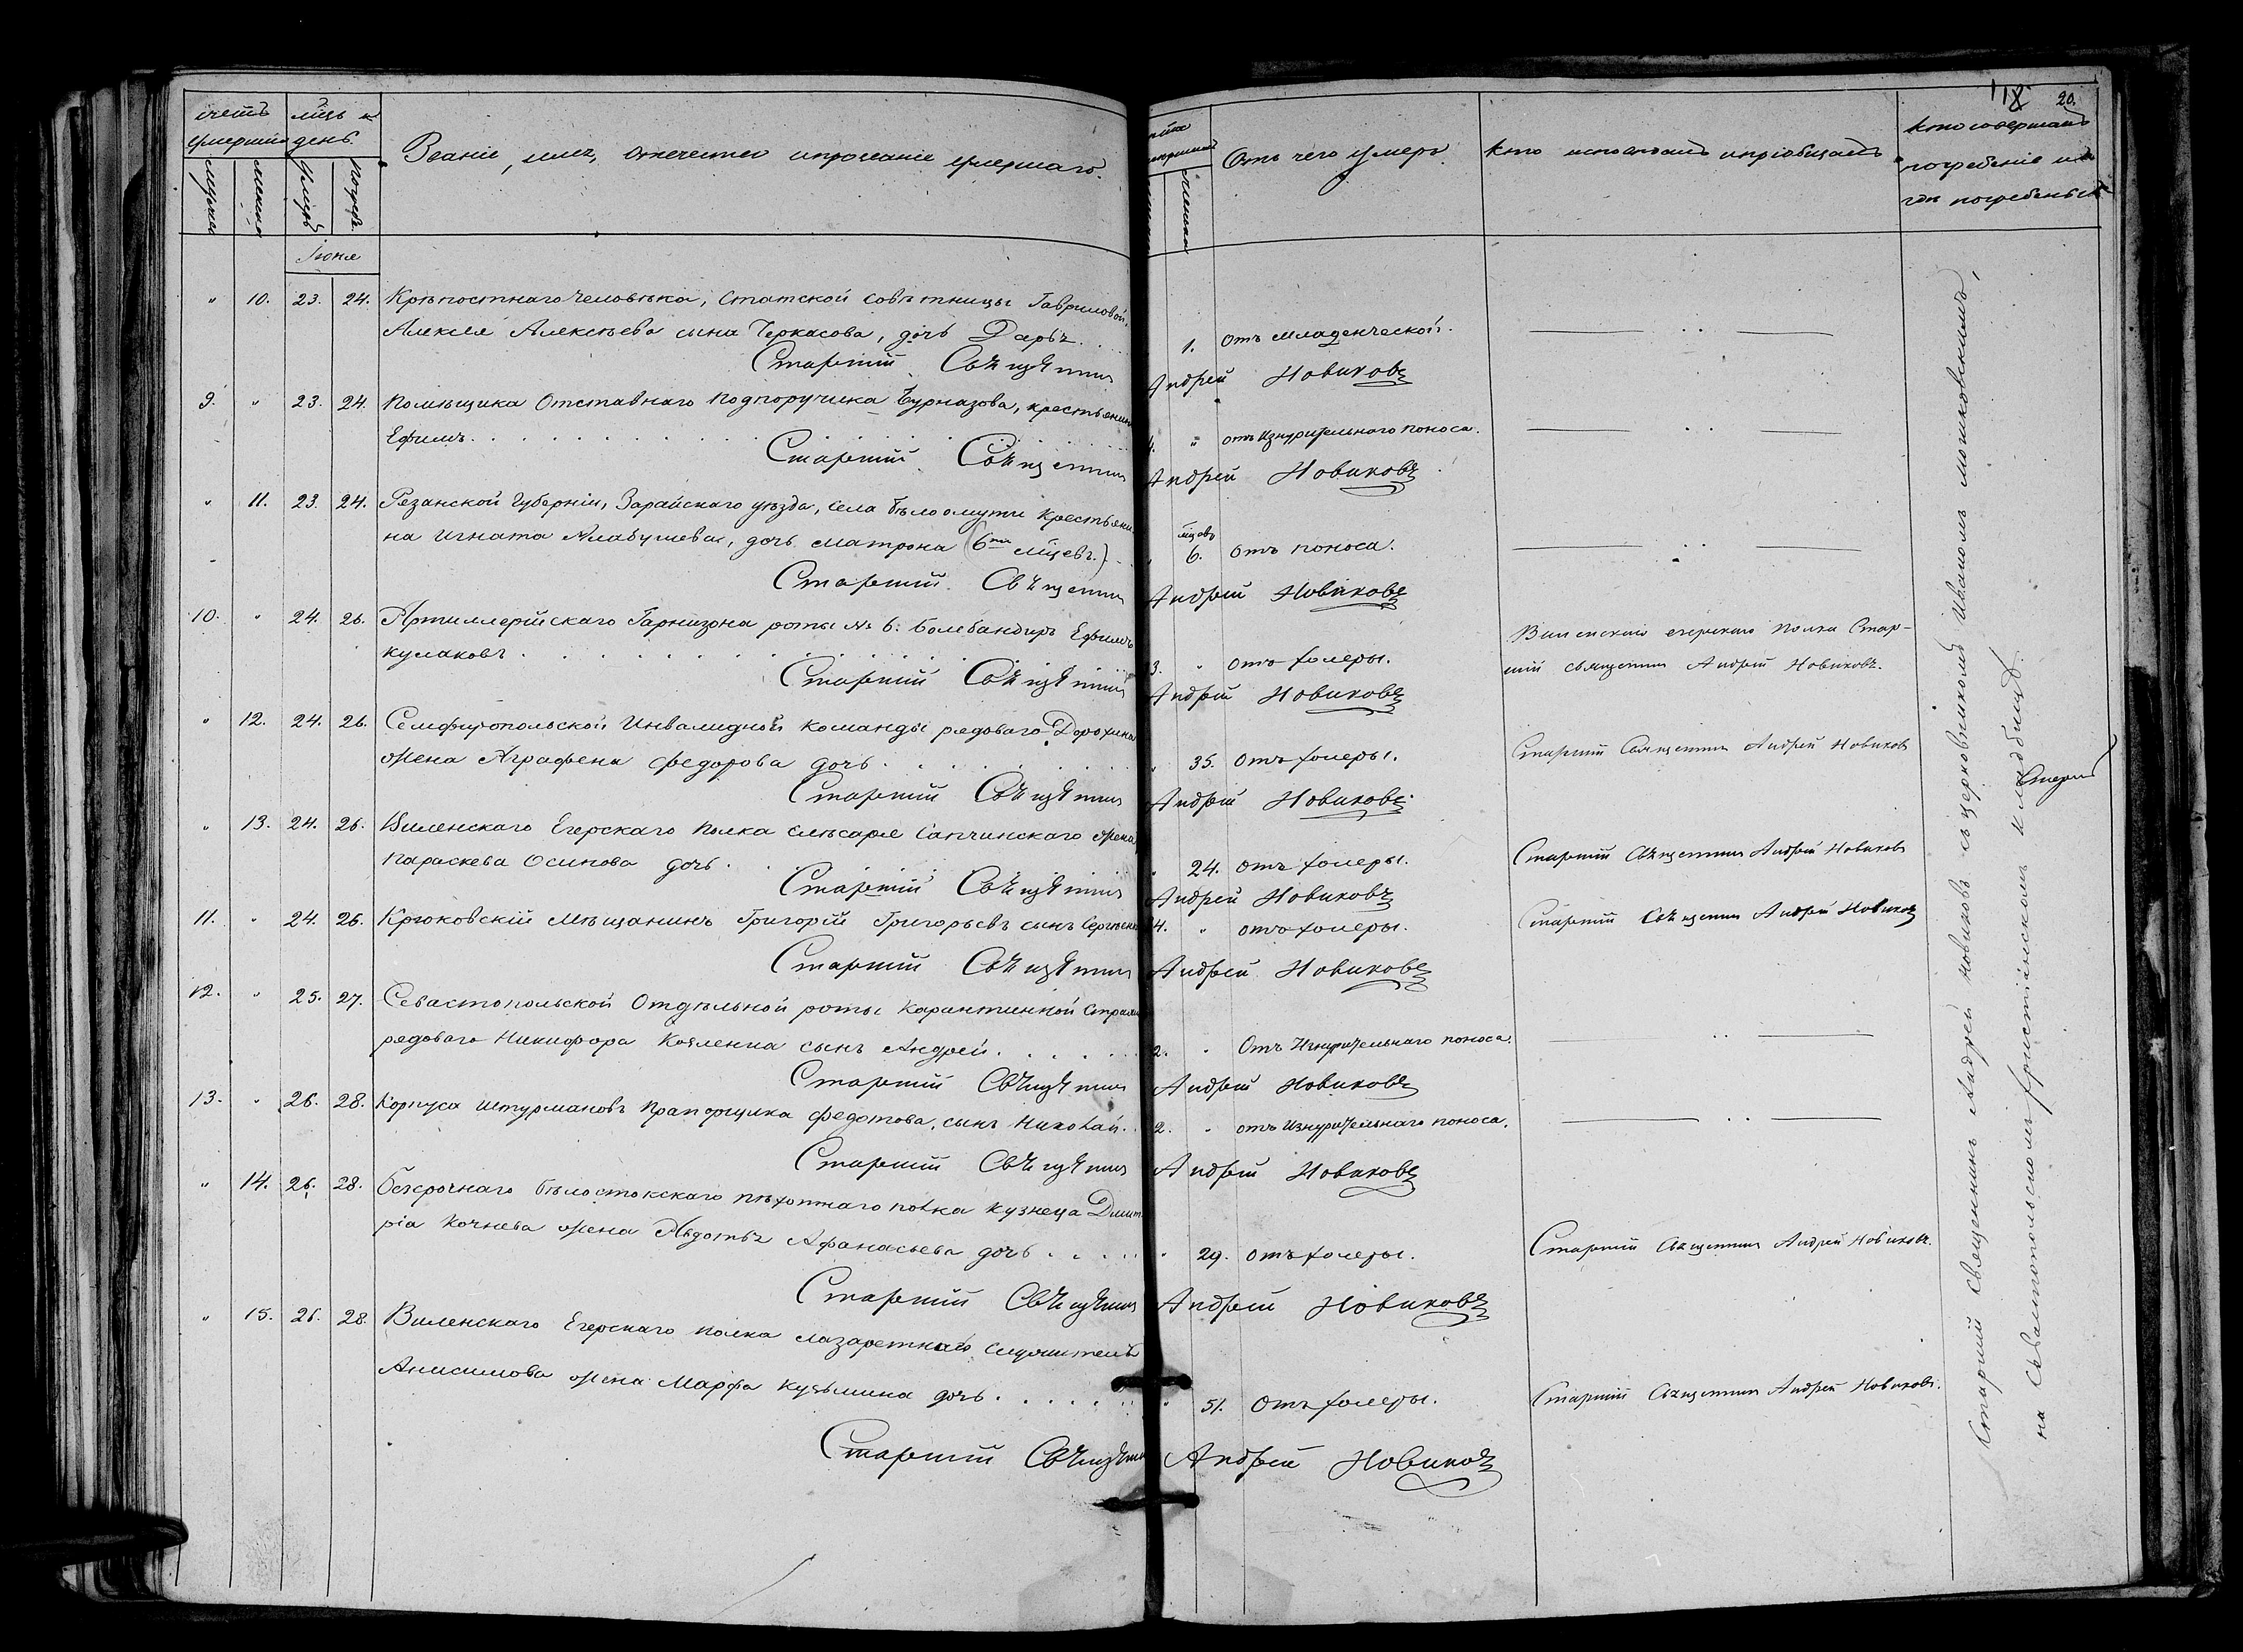 счетъ умершихъ
мѣсъ и день.
мужеска
женска
умеръ
погреб.
Званіе, имя, отечество и прозваніе умершаго.
женска
Отъ чего умеръ.
Кто исповѣдалъ и пріобщалъ
18 20.
Кто совершалъ
погребеніе и
гдѣ погребены
Іюня
" 10. 23. 24. Крѣпостнаго человѣка, Статской совѣтницы Гавриловой,
Алексея Алексѣева сына Черкасова, дочь Дарья. 1. Отъ младенческой.
Старшій Священникъ Андрей Новиковъ
9. " 23. 24. Помѣщика Отставнаго подпоручика Бурназова, крестьянинъ
Ефимъ. " отъ изнурительнаго поноса.
Старшій Священникъ Андрей Новиковъ
" 11. 23. 24. Резанской Губерніи, Зарайскаго уѣзда, села Бѣлоомути крестьяни-
на Игната дочь Матрона (6ти мѣцевъ.) мѣцовъ 6. отъ поноса.
Старшій Священникъ Андрей Новиковъ
10. " 24. 26. Артиллерійскаго Гарнизона роты № 6. Бомбандиръ Ефимъ
Кулаковъ 3. " отъ холеры. Виленскаго егерскаго полка Стар-
шій священникъ Андрей Новиковъ.
Старшій Священникъ Андрей Новиковъ
" 12. 24. 26. Семферопольской Инвалидной команды рядоваго Дорохина
жена Аграфена Федорова дочь. 35. отъ холеры. Старшій Священникъ Андрей Новиковъ
Старшій Священникъ Андрей Новиковъ
" 13. 24. 26. Виленскаго Егерскаго полка слѣсаря Сапчинскаго жена
Параскева Осипова дочь. 24. отъ холеры. Старшій Священникъ Андрей Новиковъ
Старшій Священникъ Андрей Новиковъ
11. " 24. 26. Крюковскій Мѣщанинъ Григорій Григорьевъ сынъ 4. " отъ холеры. Старшій Священникъ Андрей Новиковъ
Старшій Священникъ Андрей Новиковъ
12. " 25. 27. Севастопольской Отдѣльной роты карантинной стражи
рядоваго Никифора Коваленка сынъ Андрей. 2. " Отъ Изнурительнаго поноса.
Старшій Священникъ Андрей Новиковъ
13. " 26. 28. Корпуса штурмановъ прапорщика Федотова, сынъ Николай. 2. " отъ Изнурительнаго поноса.
Старшій Священникъ Андрей Новиковъ
" 14. 26. 28. Безсрочнаго Бѣлостокскаго пѣхотнаго полка кузнеца Дмит-
рія Кочнева жена Авдотья Афанасьева дочь. " 29. отъ холеры. Старшій Священникъ Андрей Новиковъ.
Старшій Священникъ Андрей Новиковъ
" 15. 26. 28. Виленскаго Егерскаго полка лазаретнаго служителя
Анисимова жена Марфа Кузьмина дочь. " 51. Отъ холеры. Старшій Священникъ Андрей Новиковъ.
Старшій Священникъ Андрей Новиковъ
Старшій Священникъ Андрей Новиковъ съ церковникомъ Иваномъ Мошковскимъ,
на Севастопольскомъ христіанскомъ кладбищѣ.